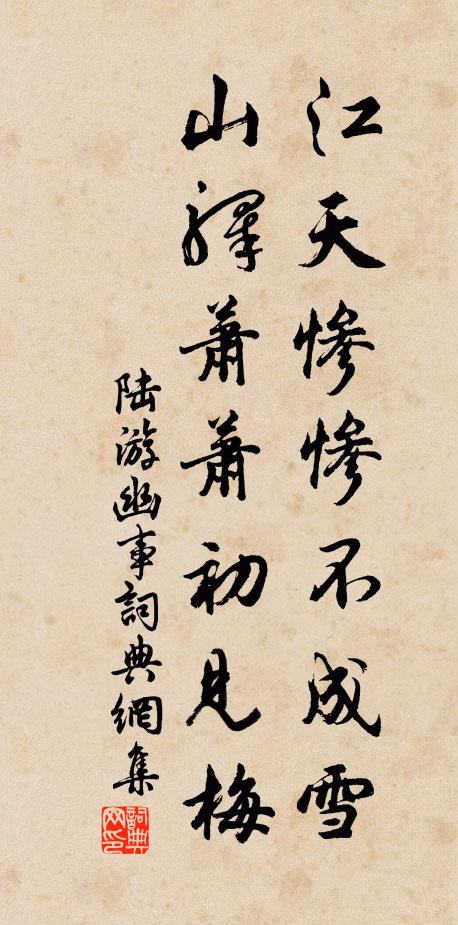 江天惨惨不成雪
山驿萧萧初见梅
陆游幽事詞典網集
詞典网印